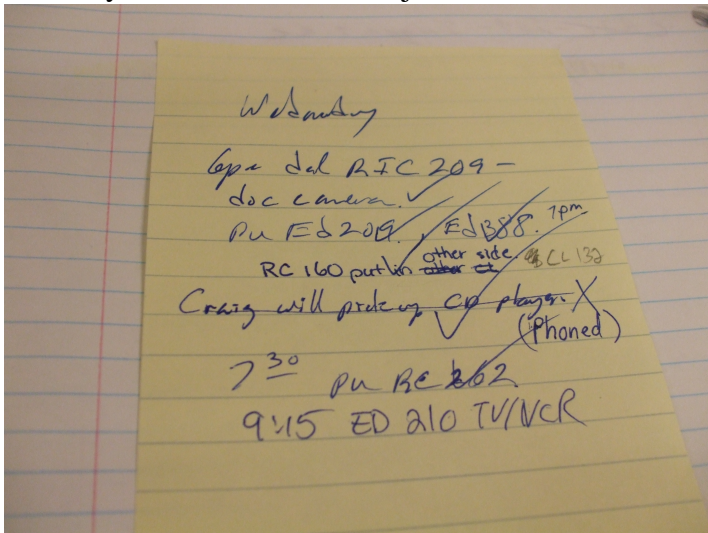 Wednesday
6pm del RIC 209 -
doc camera ✓
Pu Ed 209, Ed 388. 7pm
RC 160 put in other side. CL 132
Craig will pick up CD player. X
(Phoned)
7 30 pu RC 262
9:15 ED 210 TV/VCR